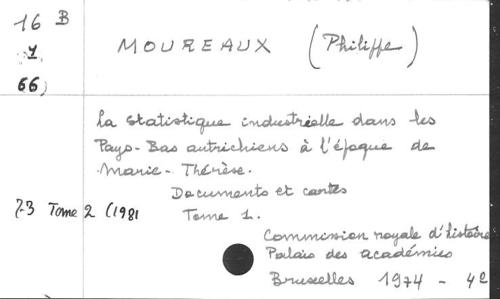 16 B
1
66)
MOUREAUX (Philippe)
La statistique industrielle dans les
Pays-Bas autrichiens à l'époque de
Marie-Thérèse.
Documents et cartes
73 Tome 2 (1981
Tome 1.
Commission royale d'histoire
Palais des académies
Bruxelles 1974 - 4º